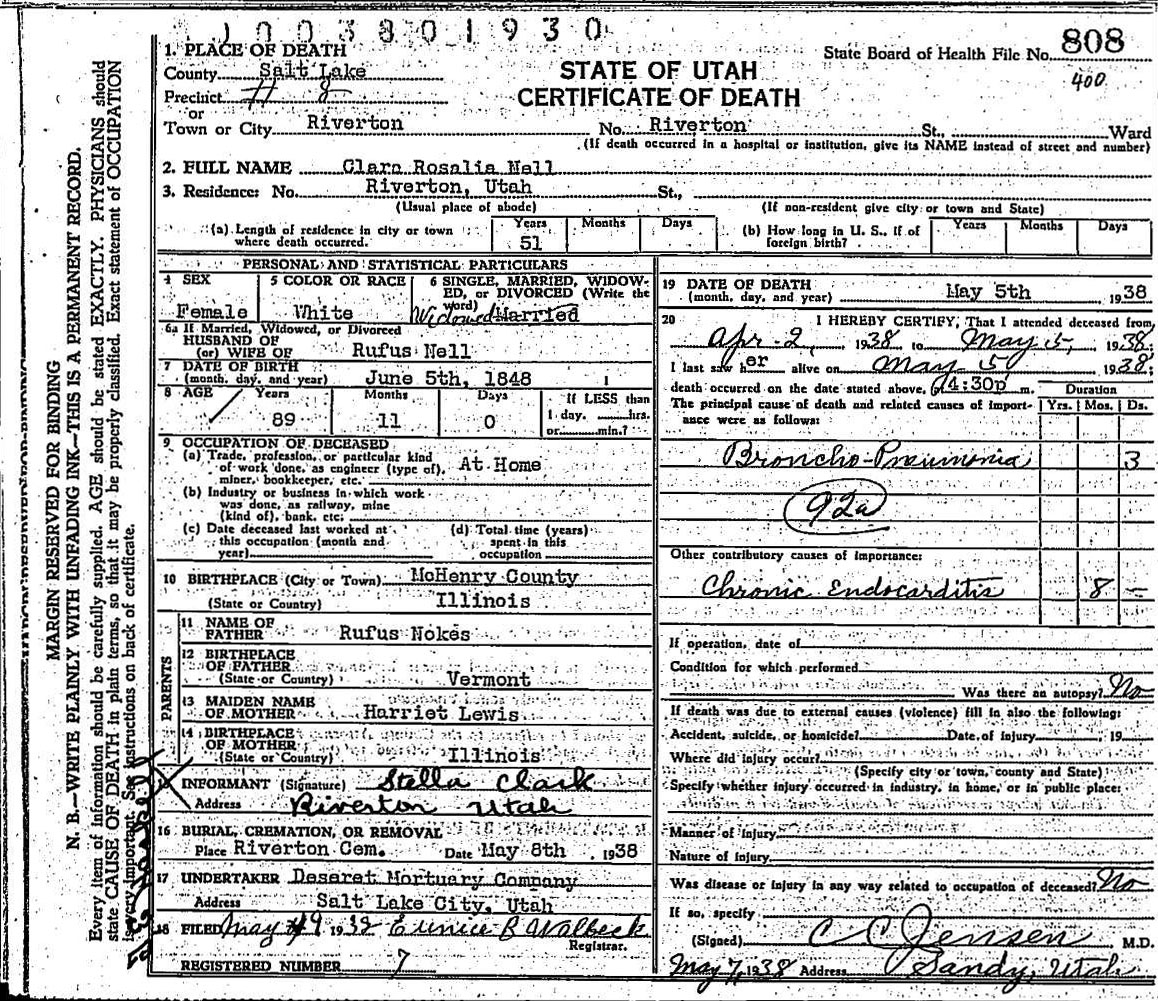 1003801930
State Board of Health File No. 808
400
1. PLACE OF DEATH
County Salt Lake
STATE OF UTAH
CERTIFICATE OF DEATH
Precinct # 8
or
Town or City Riverton No. Riverton St., Ward
(If death occurred in a hospital or institution, give its NAME instead of street and number)
2. FULL NAME Clara Rosalia Nell
3. Residence: No. Riverton, Utah St.,
(Usual place of abode) (If non-resident give city or town and State)
(a) Length of residence in city or town where death occurred. Years 51 Months Days
(b) How long in U. S., if of foreign birth? Years Months Days
PERSONAL AND STATISTICAL PARTICULARS
4 SEX Female
5 COLOR OR RACE White
6 SINGLE, MARRIED, WIDOWED, or DIVORCED (Write the word) Widowed Married
6a If Married, Widowed, or Divorced
HUSBAND OF
(or) WIFE OF Rufus Nell
7 DATE OF BIRTH
(month, day, and year) June 5th, 1848
8 AGE Years 89 Months 11 Days 0
If LESS than 1 day, hrs. or min.?
9 OCCUPATION OF DECEASED
(a) Trade, profession, or particular kind of work done, as engineer (type of), miner, bookkeeper, etc. At Home
(b) Industry or business in which work was done, as railway, mine (kind of), bank, etc.
(c) Date deceased last worked at this occupation (month and year)
(d) Total time (years) spent in this occupation
10 BIRTHPLACE (City or Town) McHenry County
(State or Country) Illinois
PARENTS
11 NAME OF FATHER Rufus Nokes
12 BIRTHPLACE OF FATHER
(State or Country) Vermont
13 MAIDEN NAME OF MOTHER Harriet Lewis
14 BIRTHPLACE OF MOTHER
(State or Country) Illinois
INFORMANT (Signature) Stella Clark
Address Riverton Utah
16 BURIAL, CREMATION, OR REMOVAL
Place Riverton Cem. Date May 8th, 1938
17 UNDERTAKER Deseret Mortuary Company
Address Salt Lake City, Utah
18 FILED May 9 1938 Eunice B Walbeck
Registrar.
REGISTERED NUMBER 7
19 DATE OF DEATH
(month, day, and year) May 5th 1938
20 I HEREBY CERTIFY, That I attended deceased from
Apr-2, 1938 to May 5, 1938;
I last saw her alive on May 5 1938;
death occurred on the date stated above, @ 4:30p m.
Duration
The principal cause of death and related causes of importance were as follows: Yrs. Mos. Ds.
Broncho-Pneumonia 3
92a
Other contributory causes of importance:
Chronic Endocarditis 8 -
If operation, date of
Condition for which performed
Was there an autopsy? No
If death was due to external causes (violence) fill in also the following:
Accident, suicide, or homicide? Date of injury , 19
Where did injury occur?
(Specify city or town, county and State)
Specify whether injury occurred in industry, in home, or in public place:
Manner of injury
Nature of injury
Was disease or injury in any way related to occupation of deceased? No
If so, specify
(Signed) C C Jensen M.D.
May 7, 1938 Address Sandy, Utah
MARGIN RESERVED FOR BINDING
N. B.—WRITE PLAINLY WITH UNFADING INK—THIS IS A PERMANENT RECORD.
Every item of information should be carefully supplied. AGE should be stated EXACTLY. PHYSICIANS should
state CAUSE OF DEATH in plain terms, so that it may be properly classified. Exact statement of OCCUPATION
is very important. See instructions on back of certificate.